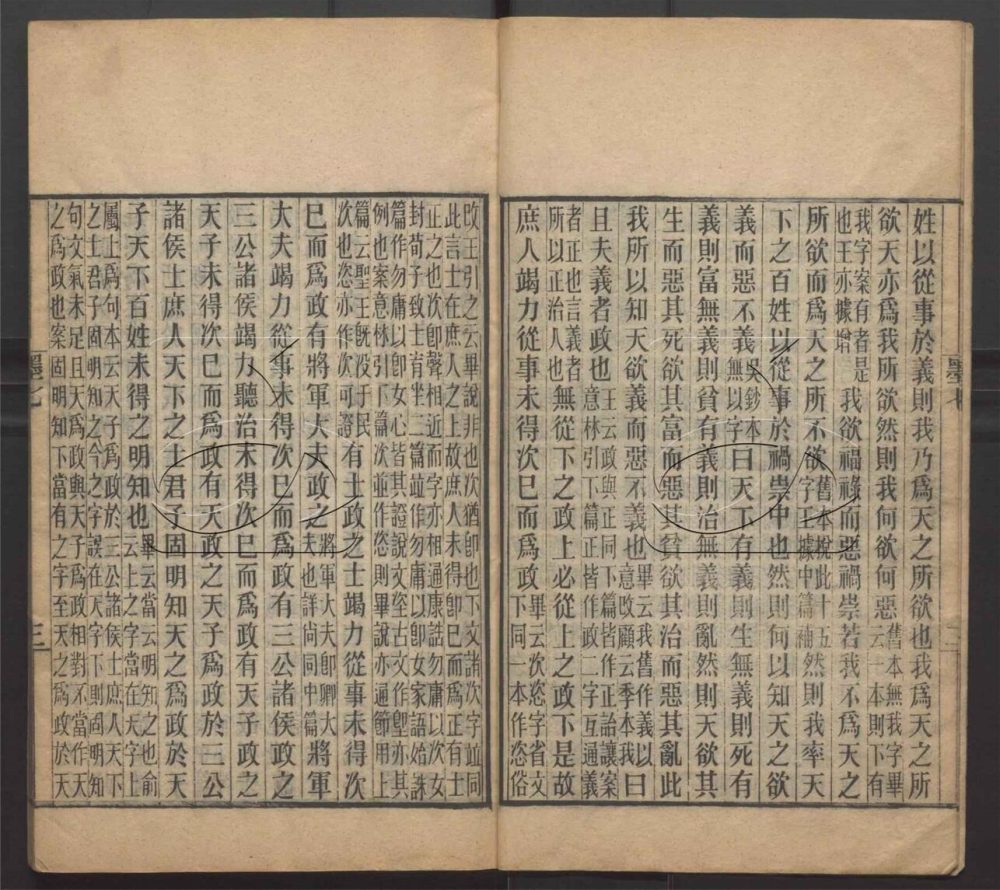 姓以從事於義則我乃爲天之所欲也我爲天之所
欲天亦爲我所欲然則我何欲何惡舊本無我字畢云一本則下有
我字案有者是也王亦據增我欲福祿而惡禍祟若我不爲天之
所欲而爲天之所不欲舊本挩此十五字王據中篇補然則我率天
下之百姓以從事於禍祟中也然則何以知天之欲
義而惡不義吳鈔本無以字曰天下有義則生無義則死有
義則富無義則貧有義則治無義則亂然則天欲其
生而惡其死欲其富而惡其貧欲其治而惡其亂此
我所以知天欲義而惡不義也畢云我舊作義以意改顧云季本我曰
且夫義者政也王云政與正同下篇皆作正詒讓案意林引下篇正皆作政二字互通義
者正也言義者所以正治人也無從下之政上必從上之政下是故
庶人竭力從事未得次巳而爲政畢云次恣字省文下同一本作恣俗
墨七
三
改王引之云畢說非也次猶卽也下文諸次字並同
此言士在庶人之上故庶人未得卽巳而爲正有士
正之也次卽聲相近而字亦相通康誥勿庸以次女
封荀子致士宥坐二篇竝作勿庸以卽女家語始誅
篇作勿庸以卽女心皆其證說文垐古文作堲亦其
例也案意林引下篇次並作恣則畢說亦通節用上
篇云聖王旣沒于民次也恣亦作次可證有士政之士竭力從事未得次
巳而爲政有將軍大夫政之將軍大夫卽卿大夫也詳尚同中篇將軍
大夫竭力從事未得次巳而爲政有三公諸侯政之
三公諸侯竭力聽治未得次巳而爲政有天子政之
天子未得次巳而爲政有天政之天子爲政於三公
諸侯士庶人天下之士君子固明知天之爲政於天
子天下百姓未得之明知也畢云當云明知之也俞云上之字當在天字上
屬上爲句本云天子爲政於三公諸侯士庶人天下
之士君子固明知之今之字誤在天字下則固明知
句文氣未足且天爲政與天子爲政相對不當作天
之爲政也案固明知下當有之字至天之爲政於天
墨七
三